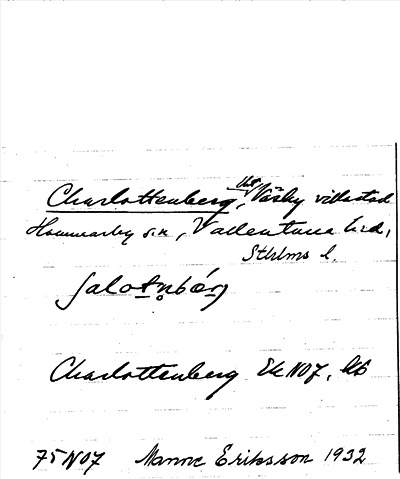 Charlottenberg, Utv. Väsby villastad
Hammarby sn, Vallentuna hd,
Sthlms l.
salotnbærj
Charlottenberg Ek N07, kb
75 N07 Manne Eriksson 1932